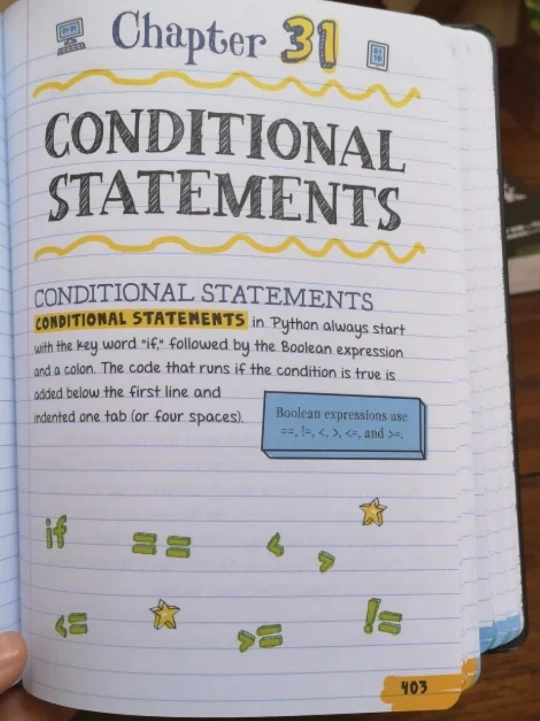 Chapter 31
CONDITIONAL
STATEMENTS
CONDITIONAL STATEMENTS
CONDITIONAL STATEMENTS in Python always start
with the key word "if," followed by the Boolean expression
and a colon. The code that runs if the condition is true is
added below the first line and
indented one tab (or four spaces).
Boolean expressions use
==, !=, <, >, <=, and >=.
if == < >
<= >= !=
403